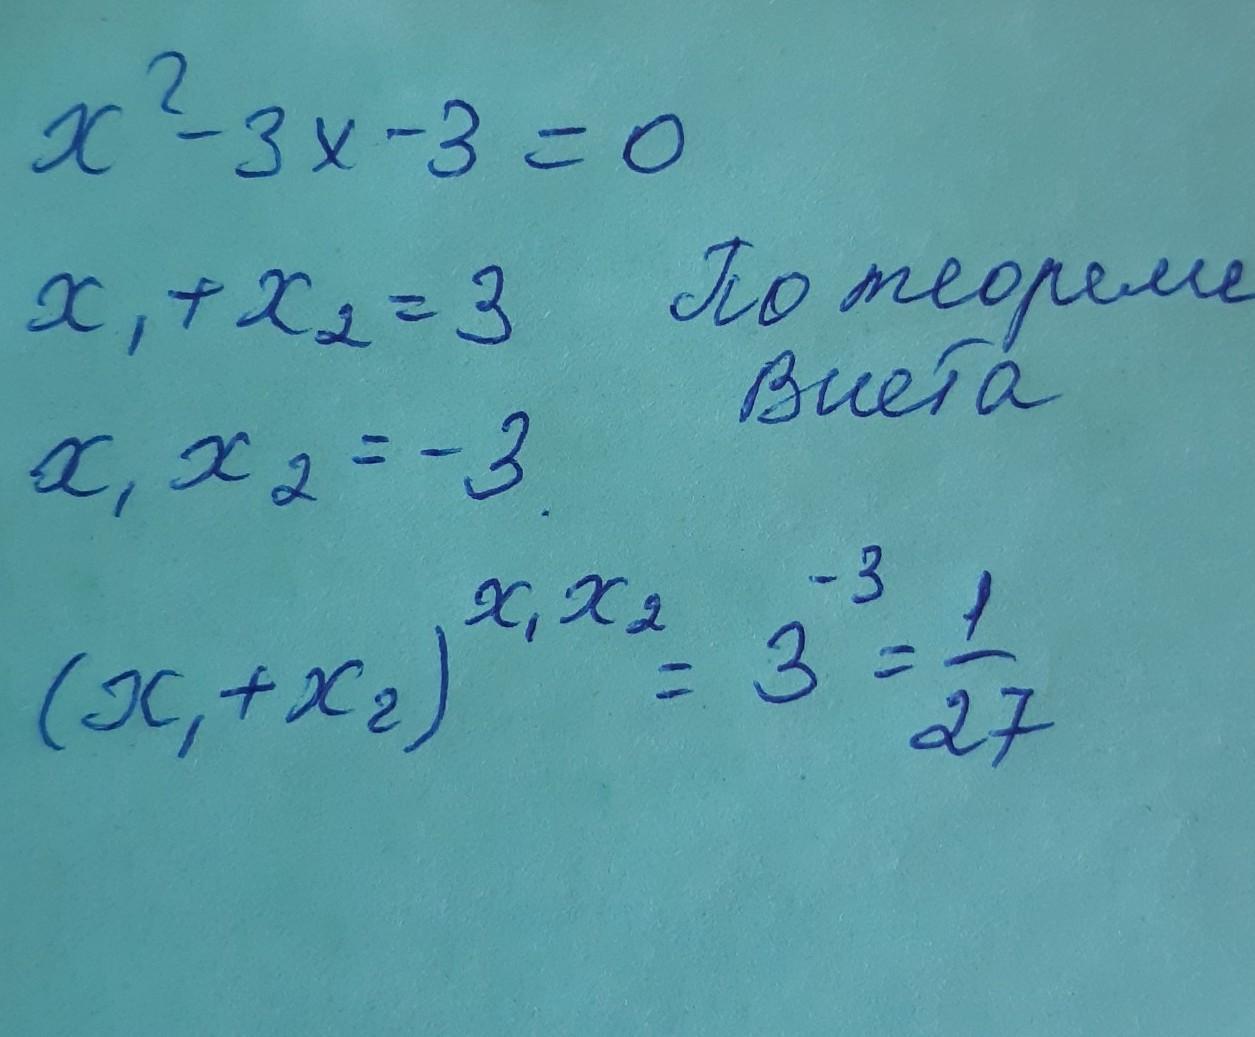 x² - 3x - 3 = 0
x₁ + x₂ = 3 По теореме
Виета
x₁ x₂ = -3.
(x₁ + x₂)^(x₁ x₂) = 3^(-3) = 1/27